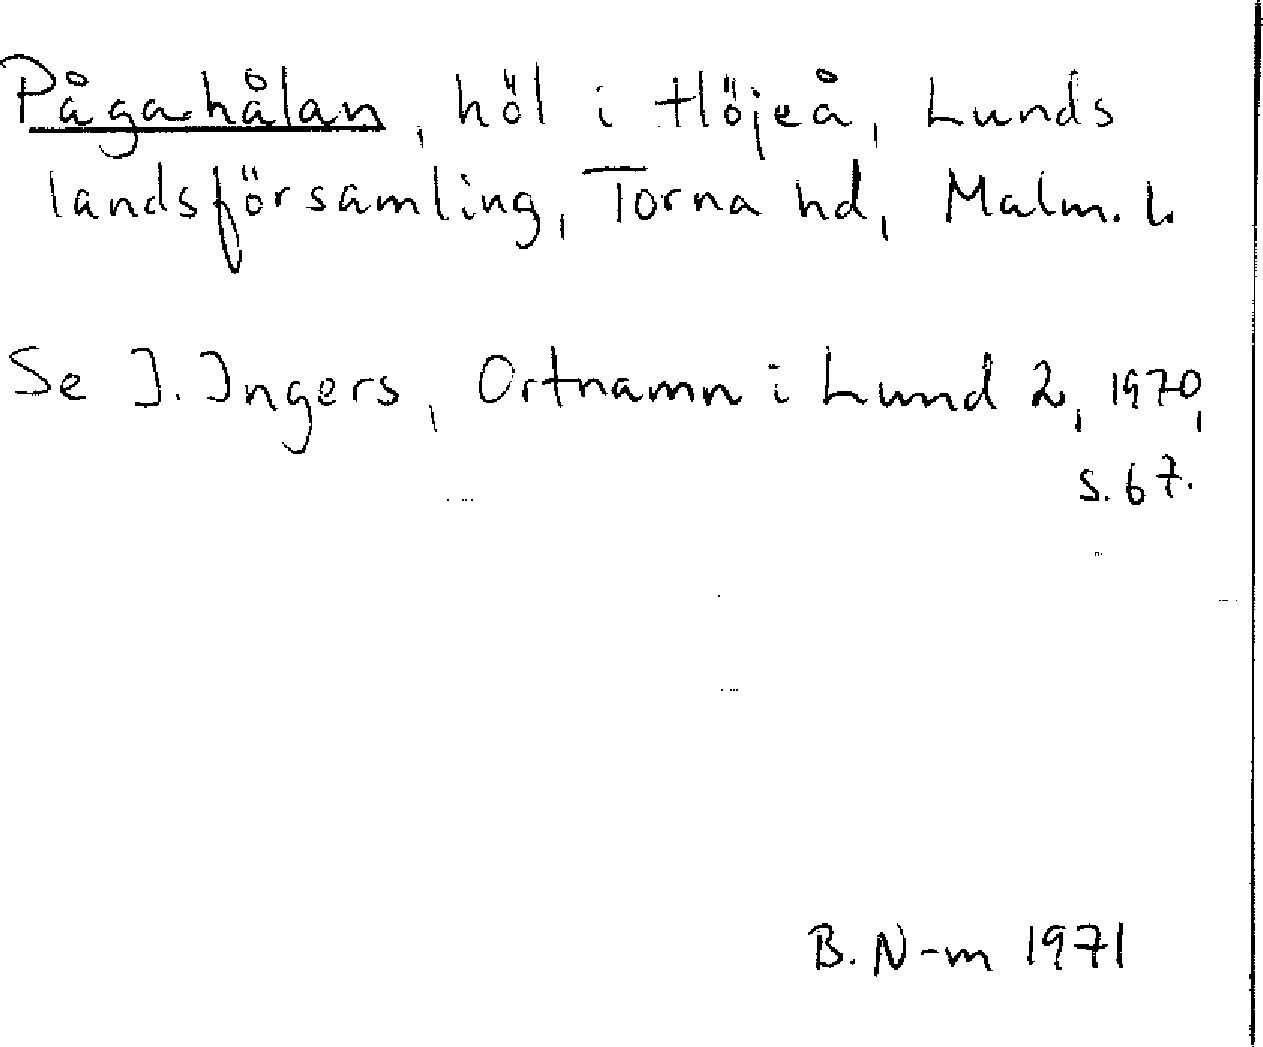 Pågahålan, höl i Höjeå, Lunds
landsförsamling, Torna hd, Malm. l.
Se I. Ingers, Ortnamn i Lund 2, 1970,
s. 67.
B. N-m 1971